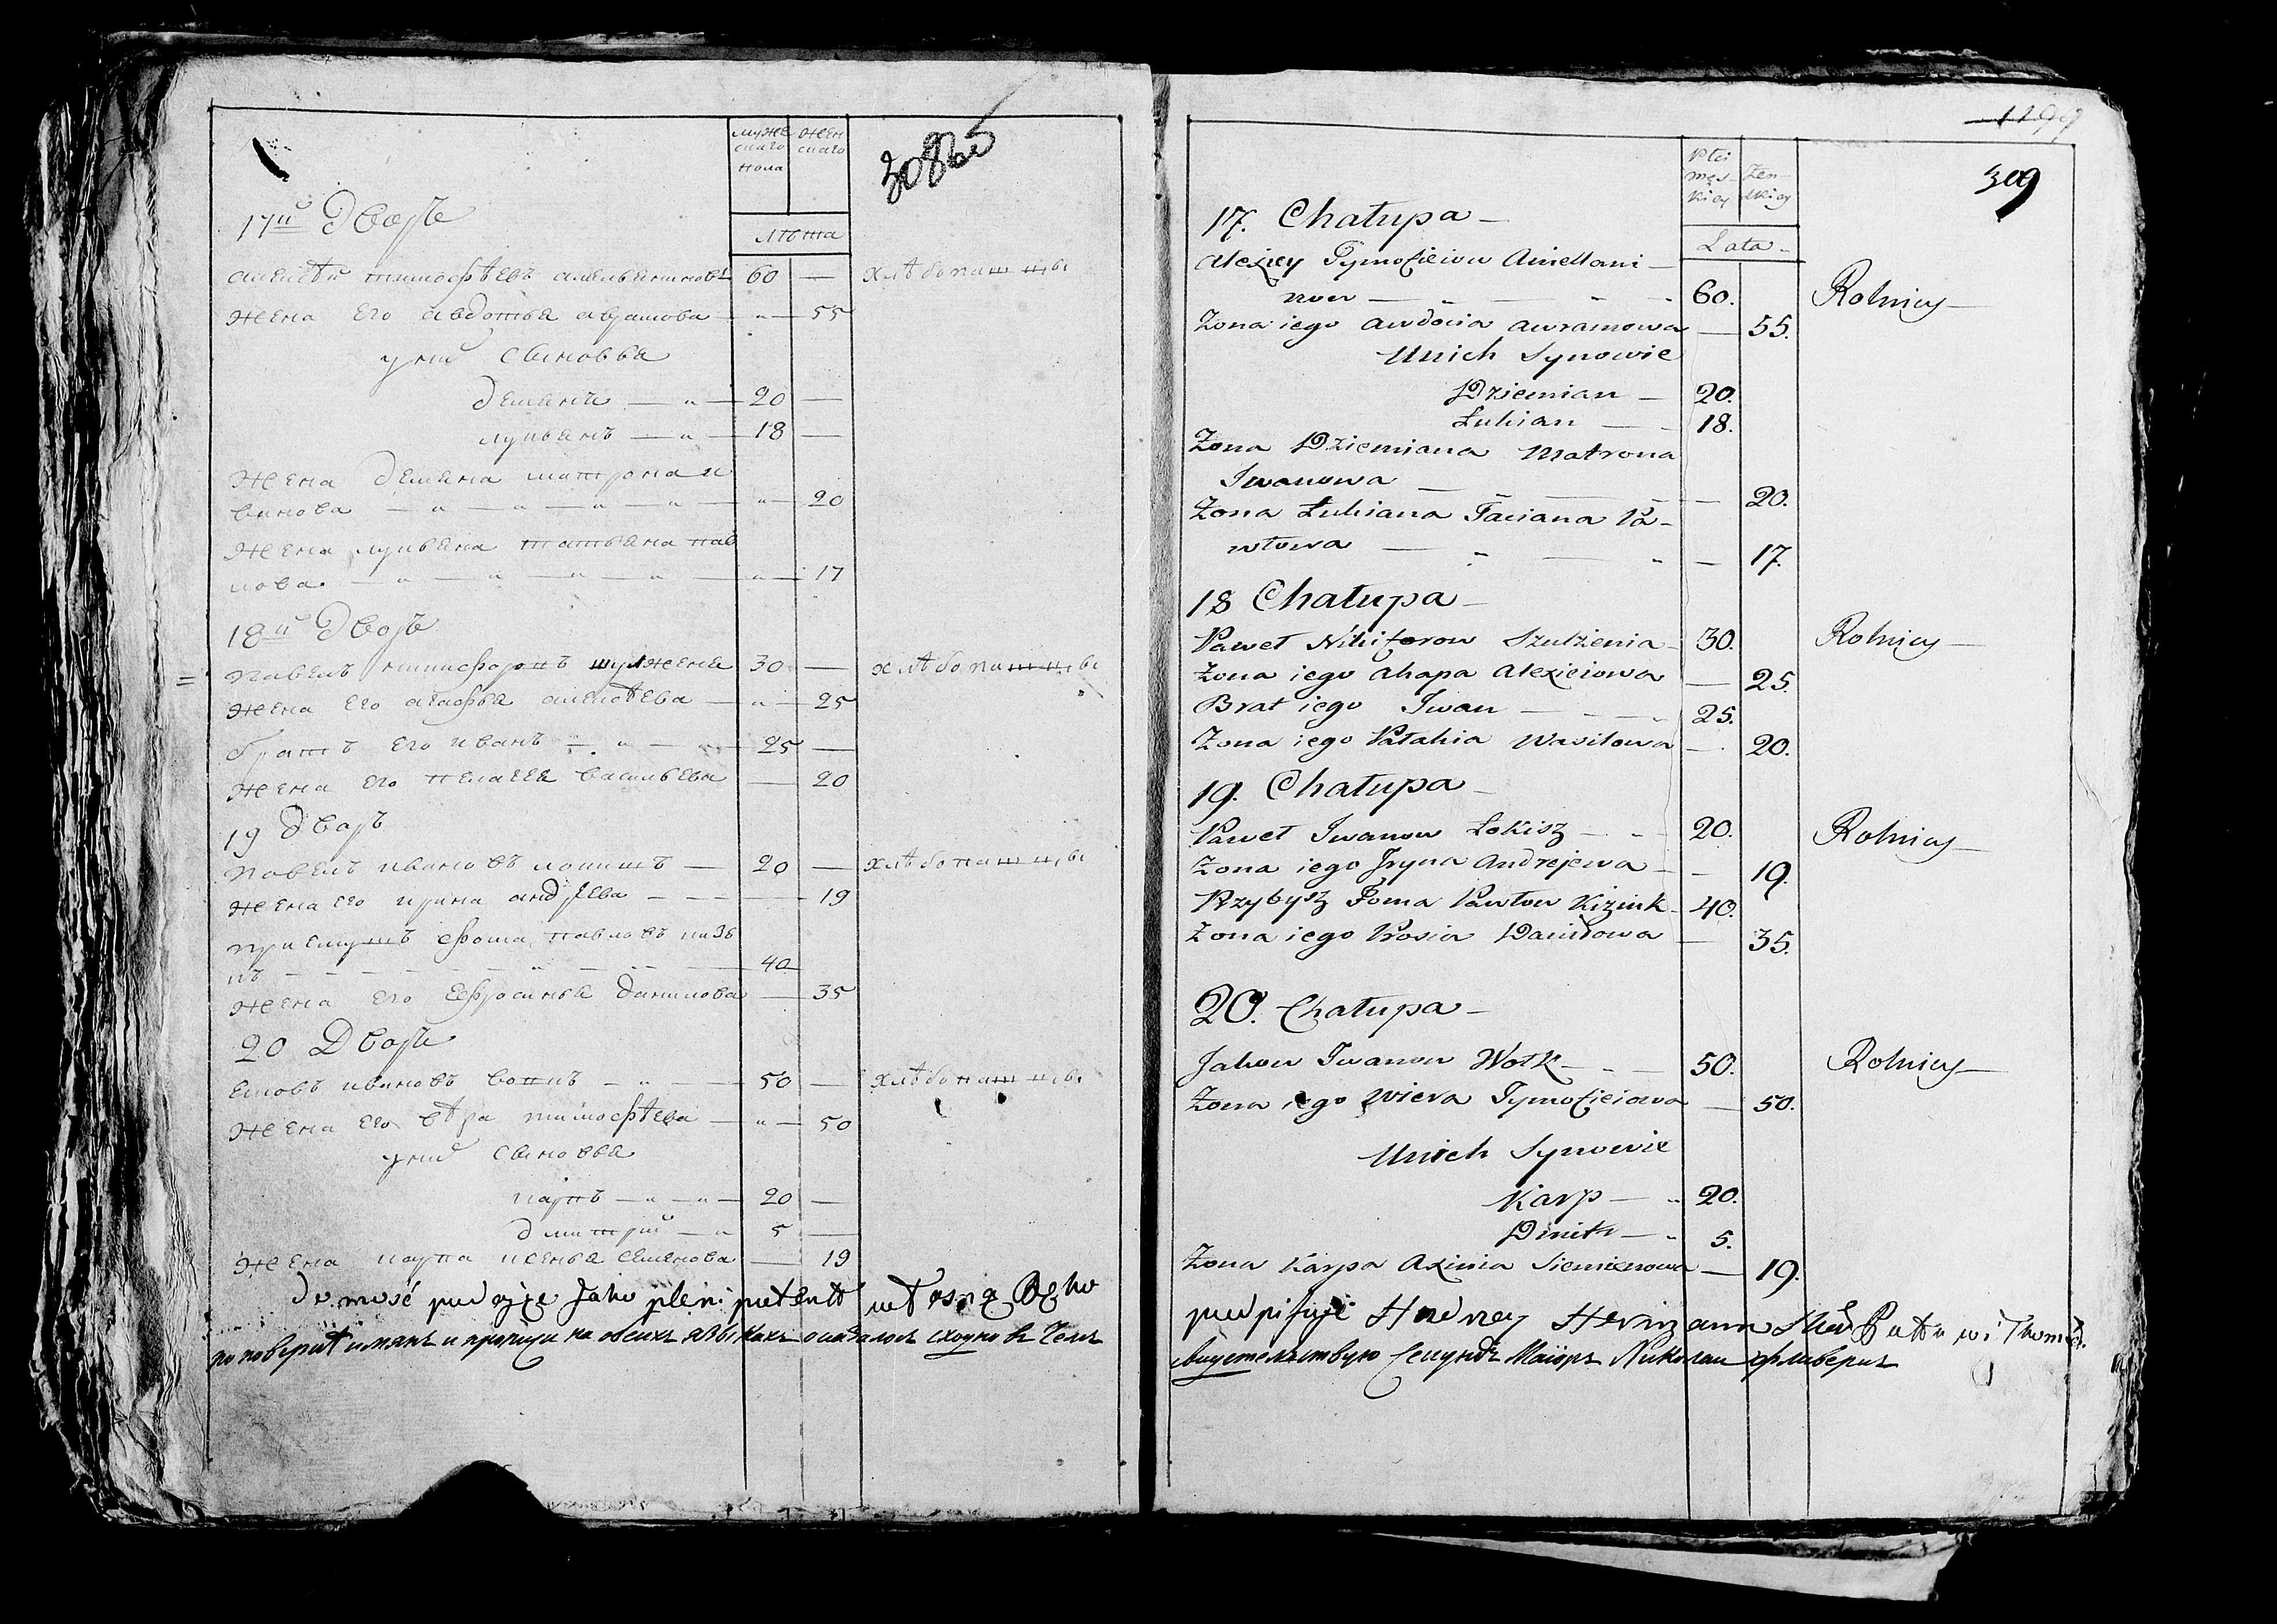 муже
скаго
пола
женскаго
лѣта
308 об
17й Дворъ
Алексѣй тимофѣевъ амельяниновъ 60 — хлѣбопашцы
жена его авдотья аврамова — „ — 55
у них сыновья
демьянъ — „ — 20 —
лукьянъ — „ — 18 —
жена демьяна матрона и
ванова — „ — „ — „ — „ — „ — 20
жена лукьяна татьяна пав
лова — „ — „ — „ — „ — „ — 17
18й Дворъ
павелъ никифоровъ шулженя 30 — хлѣбопашцы
жена его агафья алексѣева — „ — 25
братъ его иванъ — „ — 25 —
жена его пелагея васильева — 20
19 дворъ
павелъ ивановъ локишъ — 20 — хлѣбопашцы
жена его ирина андрѣева — — — 19
приемышъ фома павловъ кизь
къ — — — 40
жена его ефросинья данилова — 35
20 Дворъ
яковъ ивановъ волкъ — „ — 50 — хлѣбопашцы
жена его вѣра тимофѣева — „ — 50
у них сыновья
карпъ — „ — „ — 20 —
дмитрий — „ 5 —
жена карпа ксенья семенова — 19
płci
męskiey
Zenskiey
Lata
309
17. Chałupa —
Alexiey Tymofieiow Amellani—
now — „ — „ — „ 60. Rolnicy —
Zona iego Awdocia Awramowa — 55.
U nich Synowie
Dziemian — 20.
Łukian — — 18.
Zona Dziemiana Matrona
Iwanowa — — — — 20.
Zona Łukiana Taciana Pa—
włowa — „ — „ — 17.
18 Chałupa —
Paweł Nikiforow Szulzenia — 30. Rolnicy —
Zona iego Ahapa Alexieiowa — 25.
Brat iego Iwan — — — „ 25.
Zona iego Pałahia Wasilowa — 20.
19. Chałupa —
Paweł Iwanow Łokisz — „ 20. Rolnicy —
Zona iego Iryna Andrejewa — — 19.
Przybysz Foma Pawłow Kiziuk — 40.
Zona iego Prosia Daniłowa — 35.
20. Chałupa —
Jakow Iwanow Wołk — — 50. Rolnicy —
Zona iego Wiera Tymofieiowa — 50.
U nich Synowie
Karp — „ 20.
Dmitr — „ 5.
Zona Karpa Axinia Siemienowa — 19.
podaję Jako plenipotent własną Ręko podpisuję Herman
по поверки имянъ и прочиuu на обеихъ языкахъ оказалось сходно въ чемъ свидетельствую Секундъ Маіоръ Николай